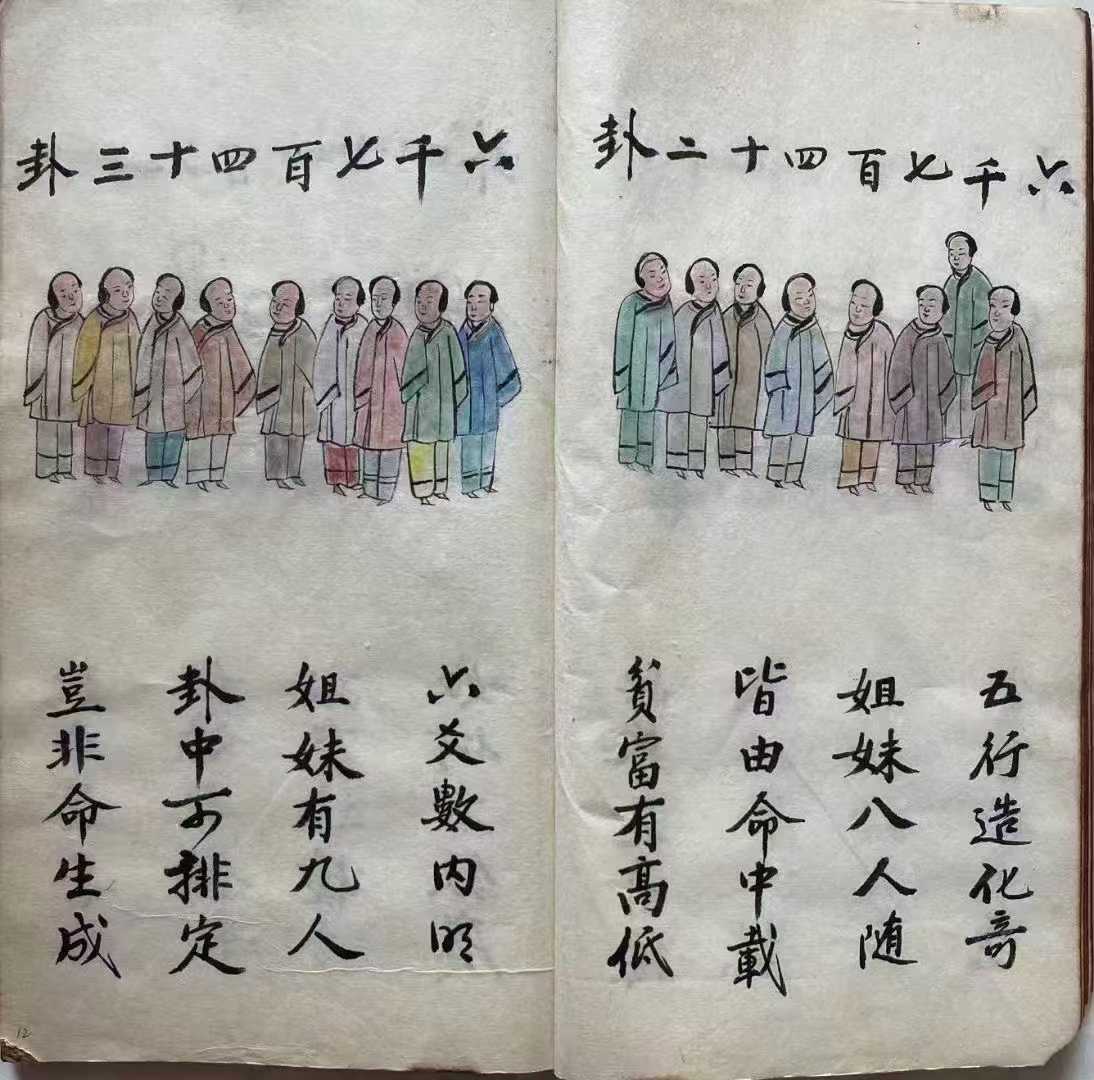 六千七百四十二卦
五行造化奇
姐妹八人随
皆由命中載
貧富有高低
六千七百四十三卦
六爻數内明
姐妹有九人
卦中可排定
豈非命生成
12